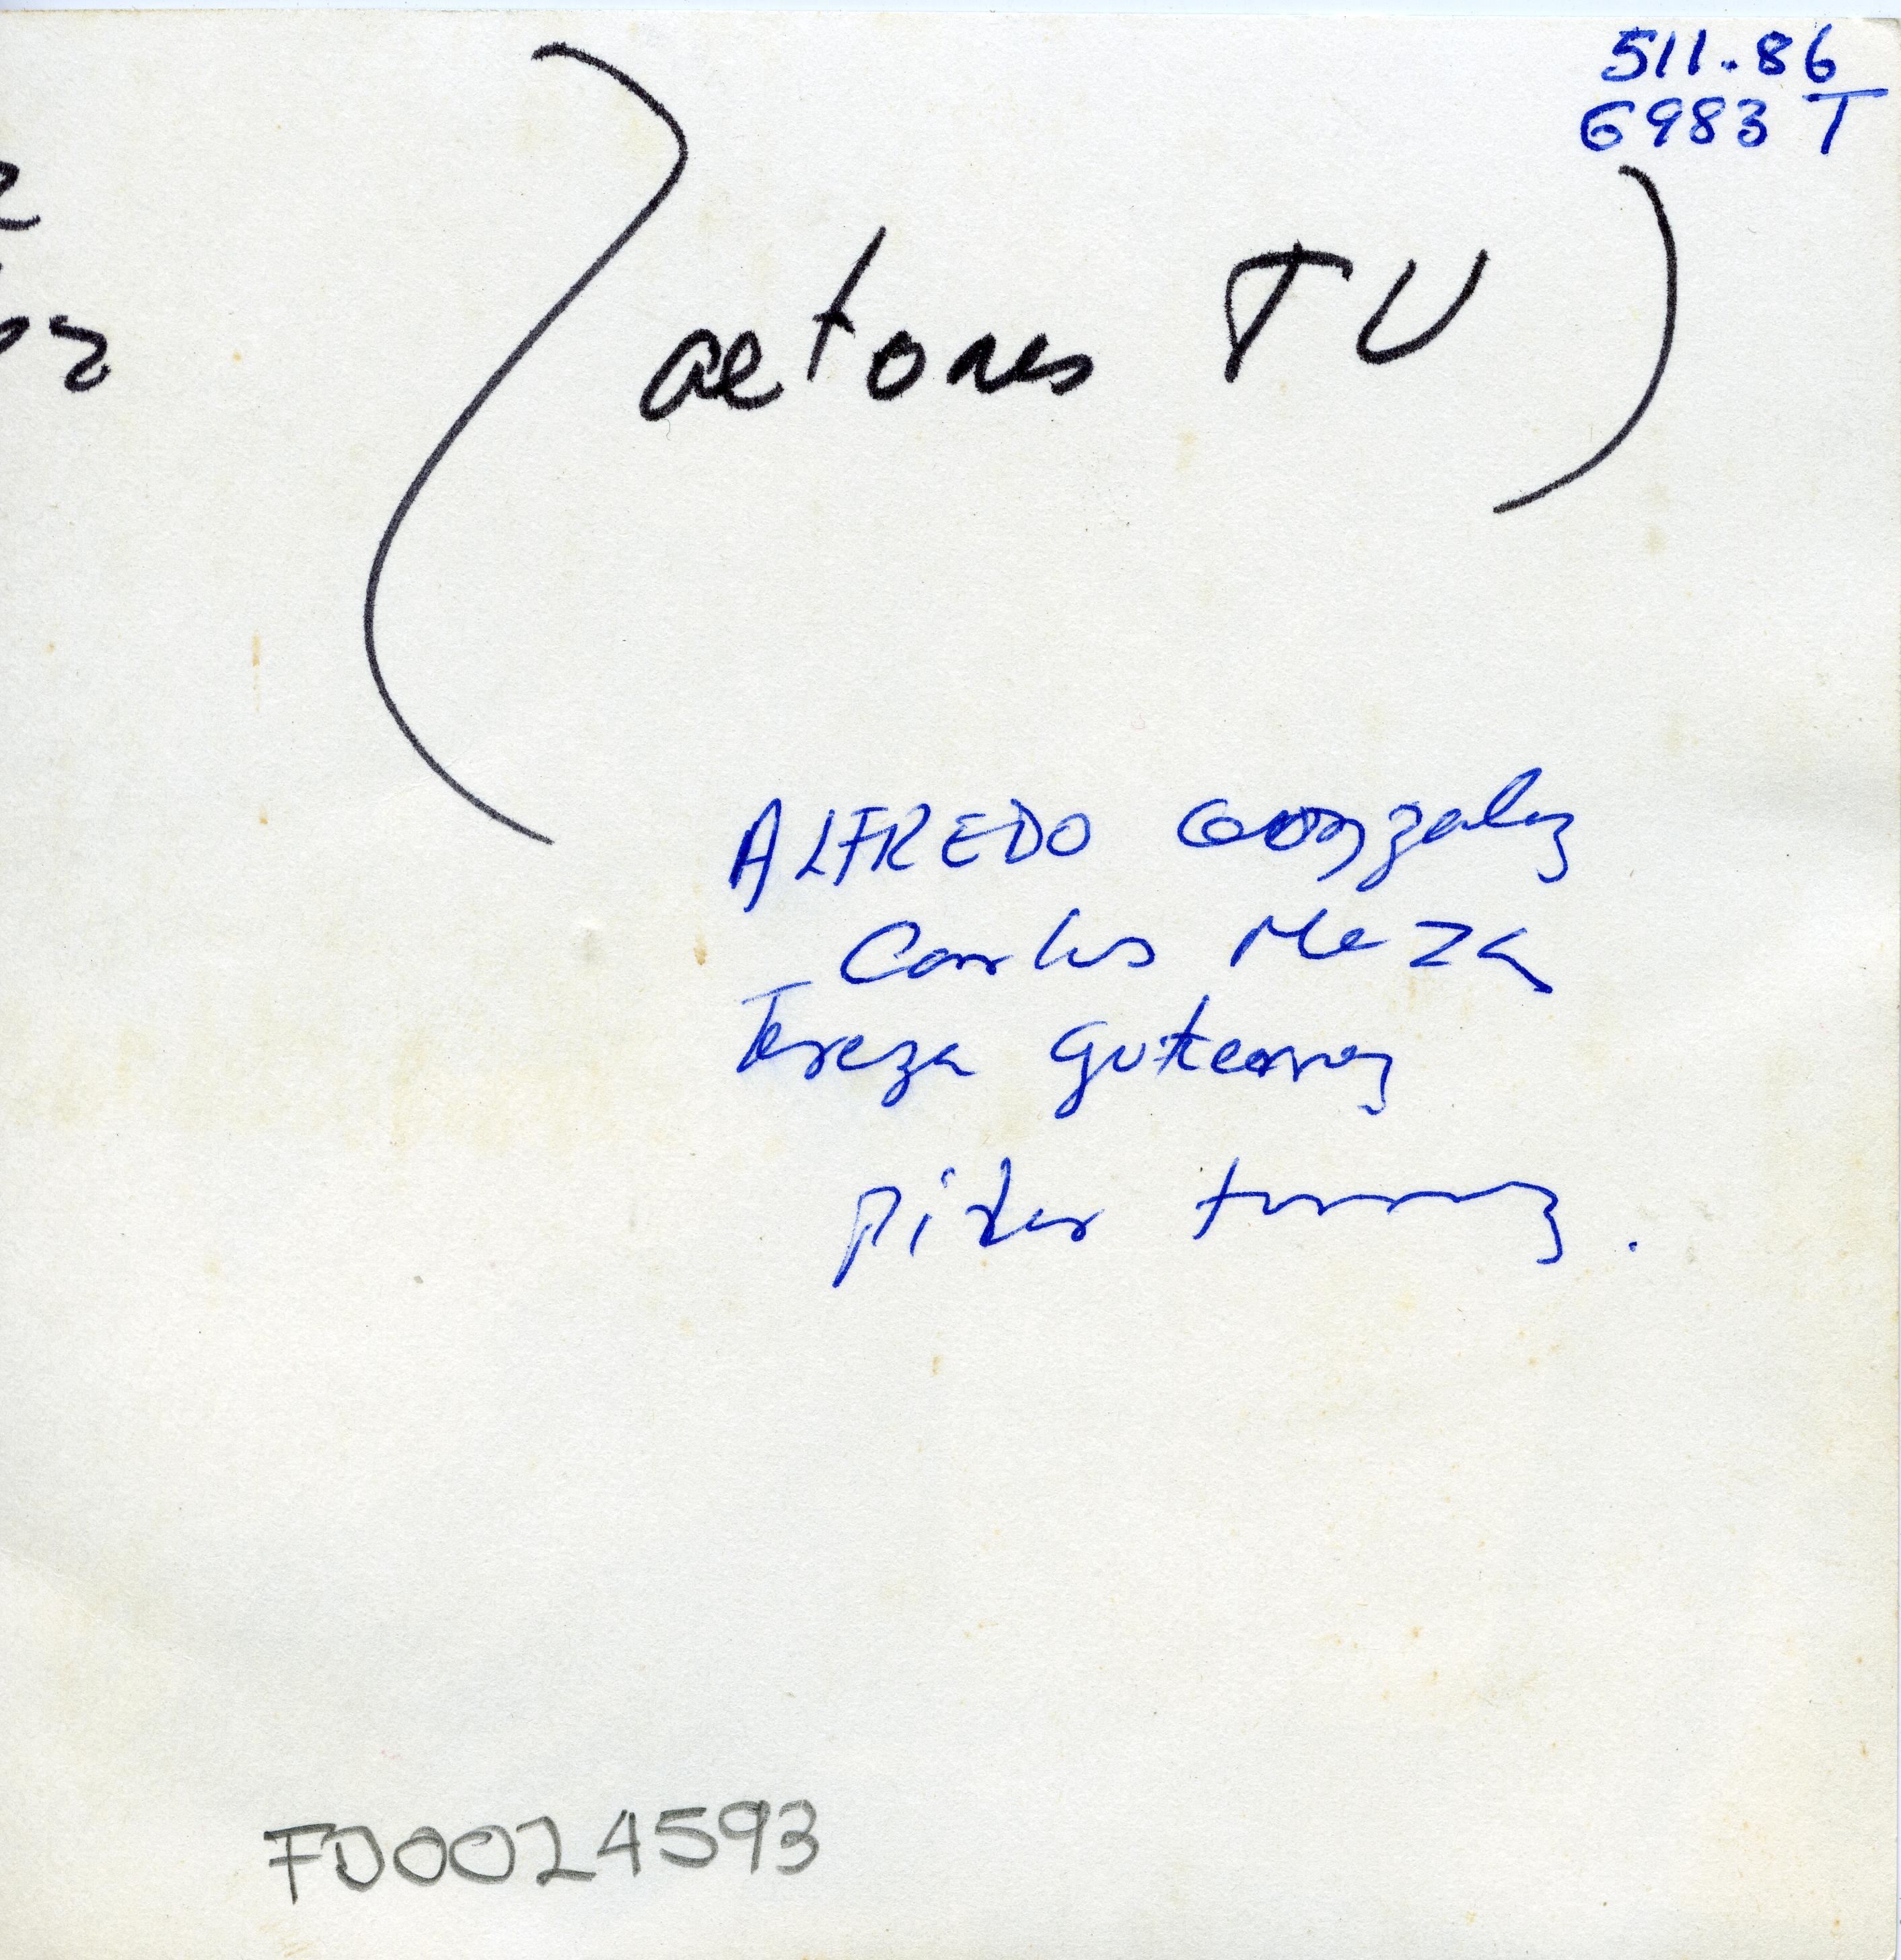 511.86
6983 T
(actores TV)
ALFREDO Gonzalez
Carlos Meza
Tereza Gutierrez
Piter torrez.
FD0024593